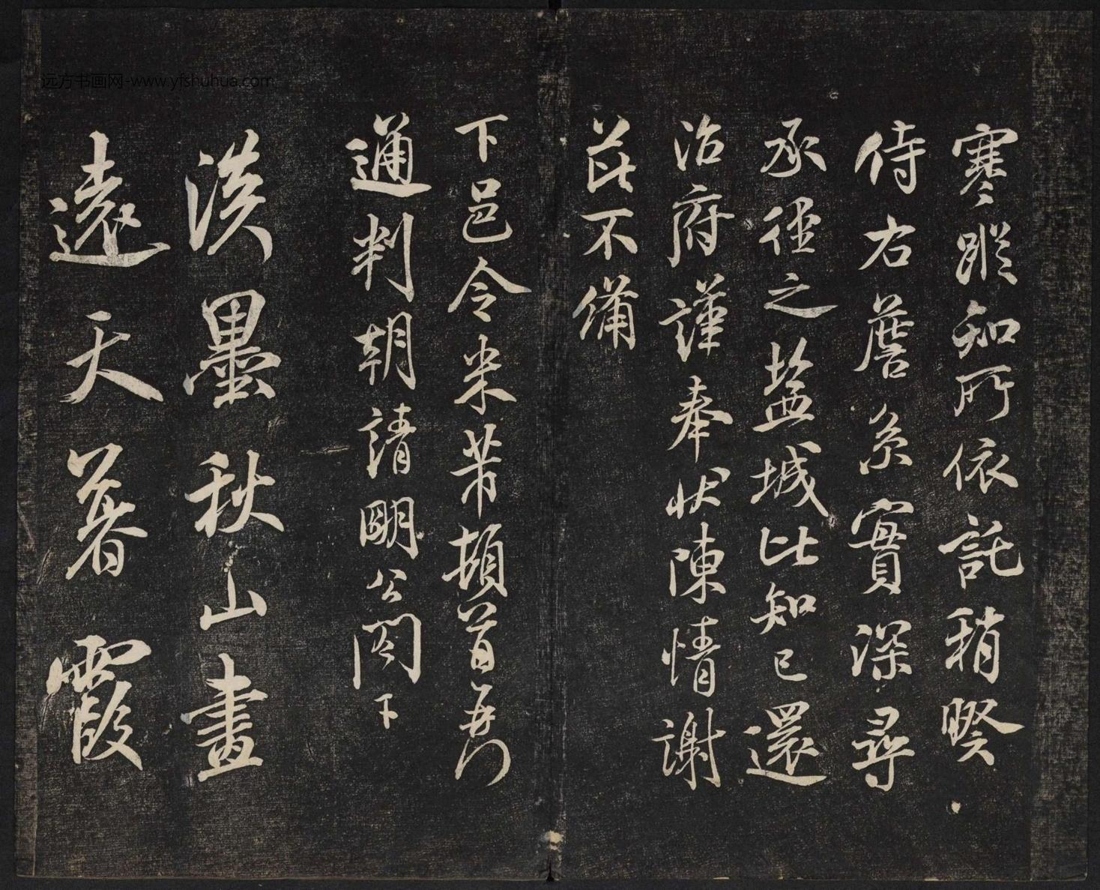 远方书画网-www.yfshuhua.com
寒蹤知所依託稍暌
侍右詹系實深尋
承徑之盐城比知已還
治府謹奉狀陳情謝
芘不備
下邑令米芾頓首再拜
通判朝請朙公閤下
淡墨秋山畫
遠天暮霞